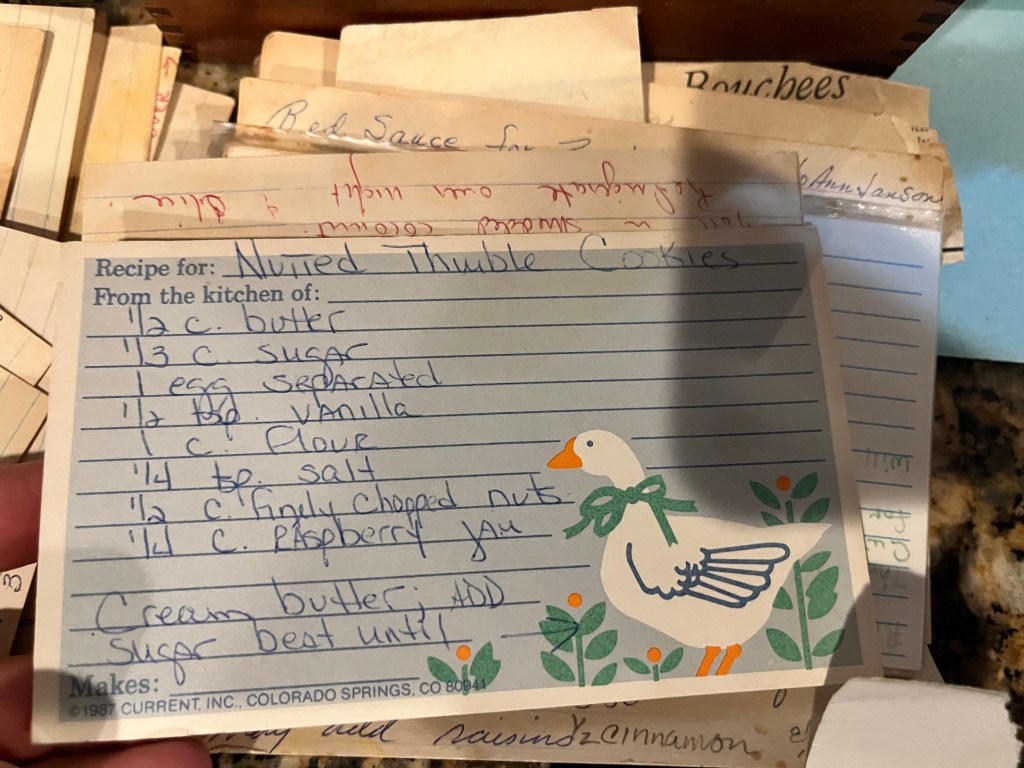 Bouchees
Red Sauce for
OVER →
Ann Janson
Refrigerate over night & slice.
in shredded coconut
Recipe for: Nutted Thimble Cookies
From the kitchen of:
1/2 c. butter
1/3 c. sugar
1 egg separated
1/2 tsp. vanilla
1 c. flour
1/4 tsp. salt
1/2 c. finely chopped nuts
1/4 c. Raspberry Jam
Cream butter; ADD
sugar beat until →
Makes:
©1987 CURRENT, INC., COLORADO SPRINGS, CO 80941
may add raisins & cinnamon